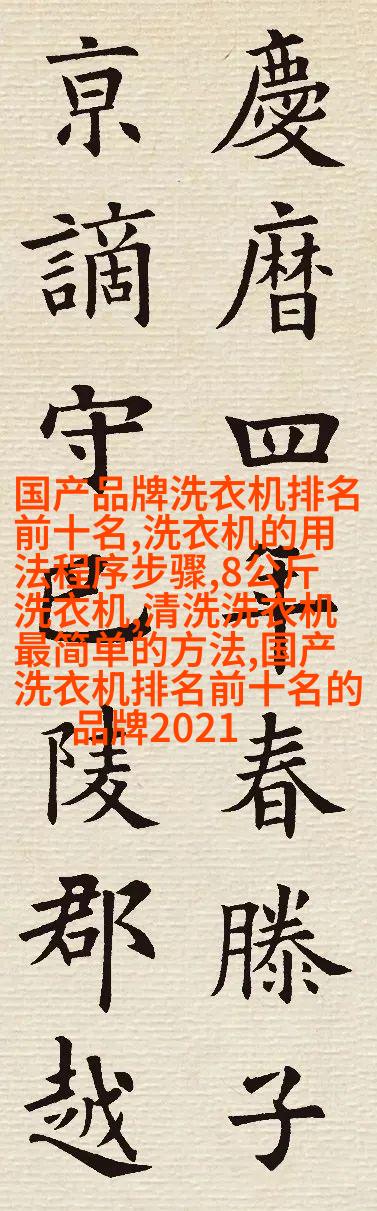 慶暦四年春滕子
亰謫守巴陵郡越
国产品牌洗衣机排名
前十名,洗衣机的用
法程序步骤,8公斤
洗衣机,清洗洗衣机
最简单的方法,国产
洗衣机排名前十名的
品牌2021